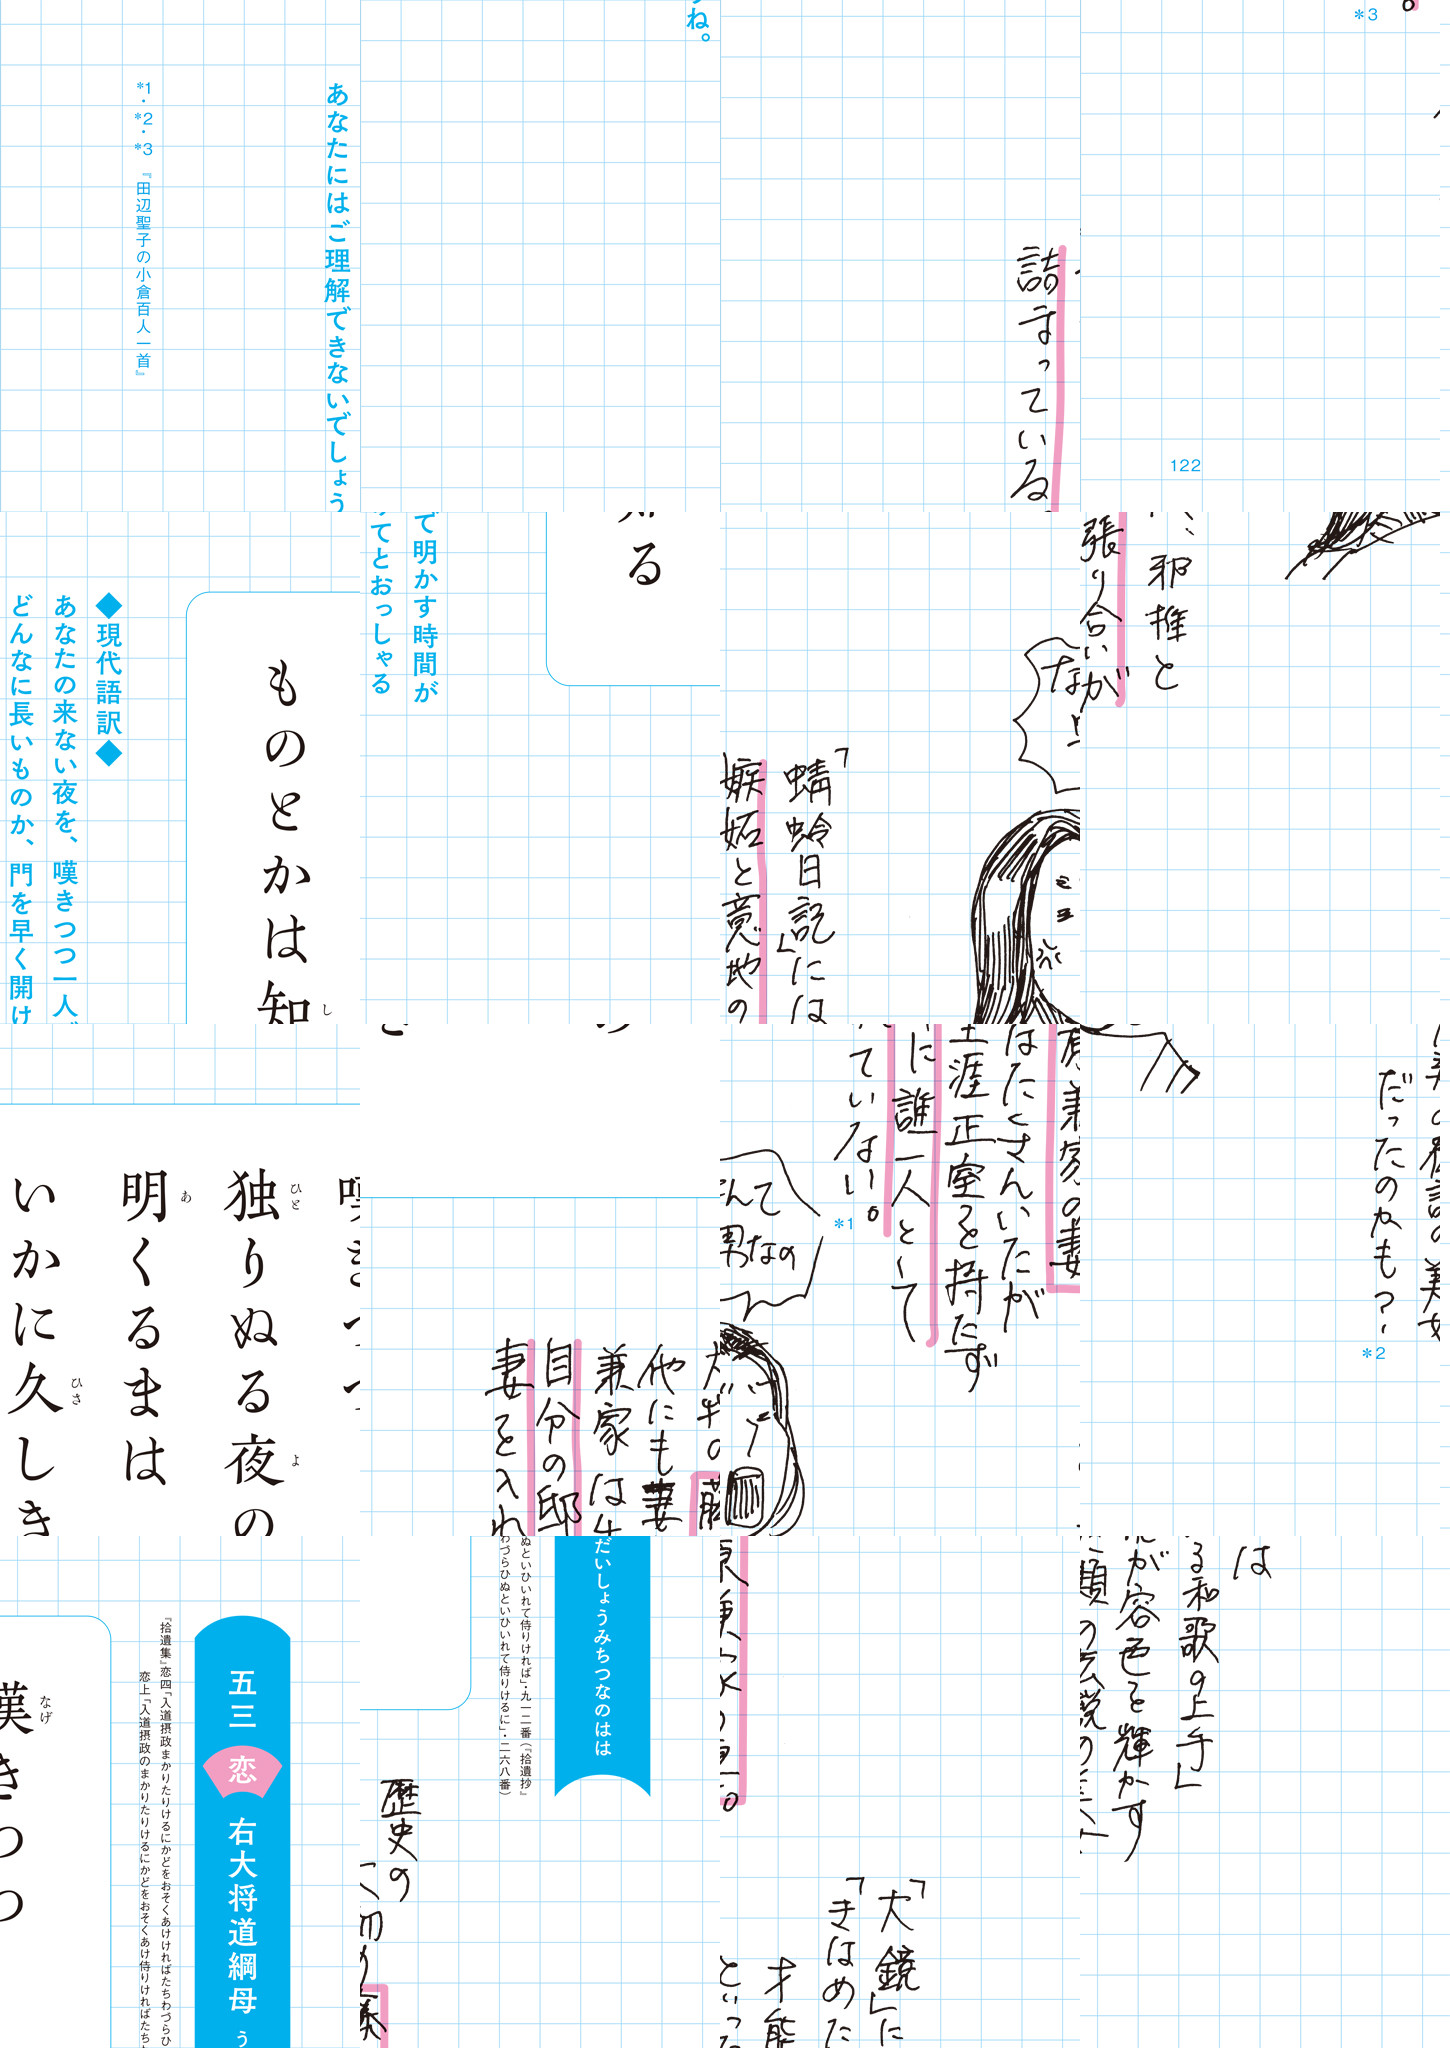 五三 恋 右大将道綱母 うだいしょうみちつなのはは
『拾遺集』恋四「入道摂政まかりたりけるにかどをおそくあけければたちわづらひぬといひいれて侍りければ」・九一二番(『拾遺抄』
恋上「入道摂政のまかりたりけるにかどをおそくあけ侍りければたちわづらひぬといひいれて侍りけるに」・二六八番)
嘆きつつ
なげ
独りぬる夜の
ひと よ
明くるまは
あ
いかに久しき
ひさ
ものとかは知る
し
◆現代語訳◆
あなたの来ない夜を、嘆きつつ一人で明かす時間が
どんなに長いものか、門を早く開けてとおっしゃる
あなたにはご理解できないでしょうね。
*1・*2・*3 『田辺聖子の小倉百人一首』
歴史の
「大鏡」には
「きはめたる和歌の上手」
才能が容色を輝かす
といった類の伝説の
だったのかも? *2
他にも妻はたくさんいたが
兼家は生涯正室を持たず
自分の邸に誰一人として
妻を入れていない。 *1
なんて
男なの
「蜻蛉日記」には、邪推と
嫉妬と意地の張り合いが
詰まっている。 *3
122